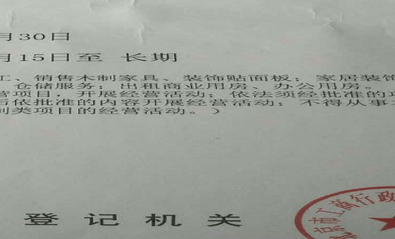 月30日
月15日至 长期
工、销售木制家具、装饰贴面板；家居装饰
、仓储服务；出租商业用房、办公用房。
营项目，开展经营活动；依法须经批准的项
后依批准的内容开展经营活动；不得从事
制类项目的经营活动。）
登记机关
工商行政